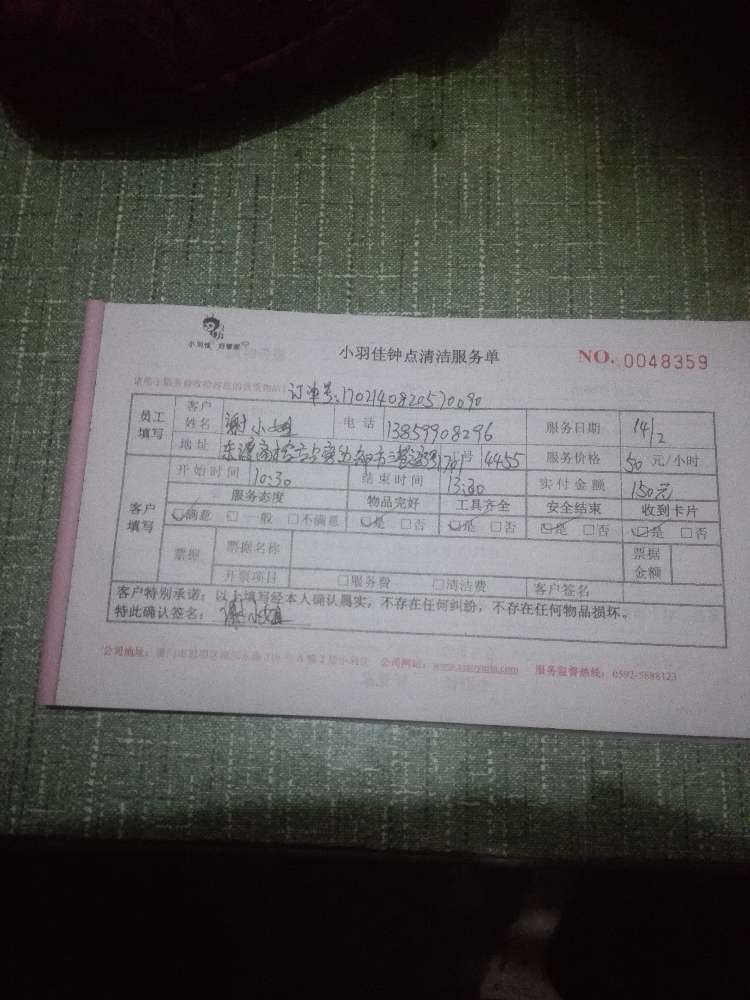 小羽佳 好管家
小羽佳钟点清洁服务单 NO. 0048359
订单号:1702140820570090
员工填写 客户姓名 谢小姐 电话 13859908296 服务日期 14/2
地址 4455 服务价格 50 元/小时
客户填写 开始时间 10:30 结束时间 13:30 实付金额 150元
服务态度 物品完好 工具齐全 安全结束 收到卡片
☑满意 □一般 □不满意 ☑是 □否 ☑是 □否 ☑是 □否 ☑是 □否
票据 票据名称 票据金额
开票项目 □服务费 □清洁费 客户签名
客户特别承诺:以上填写经本人确认属实,不存在任何纠纷,不存在任何物品损坏。
特此确认签名:谢小姐
公司地址: 公司网站: 服务监督热线:0592-5688123